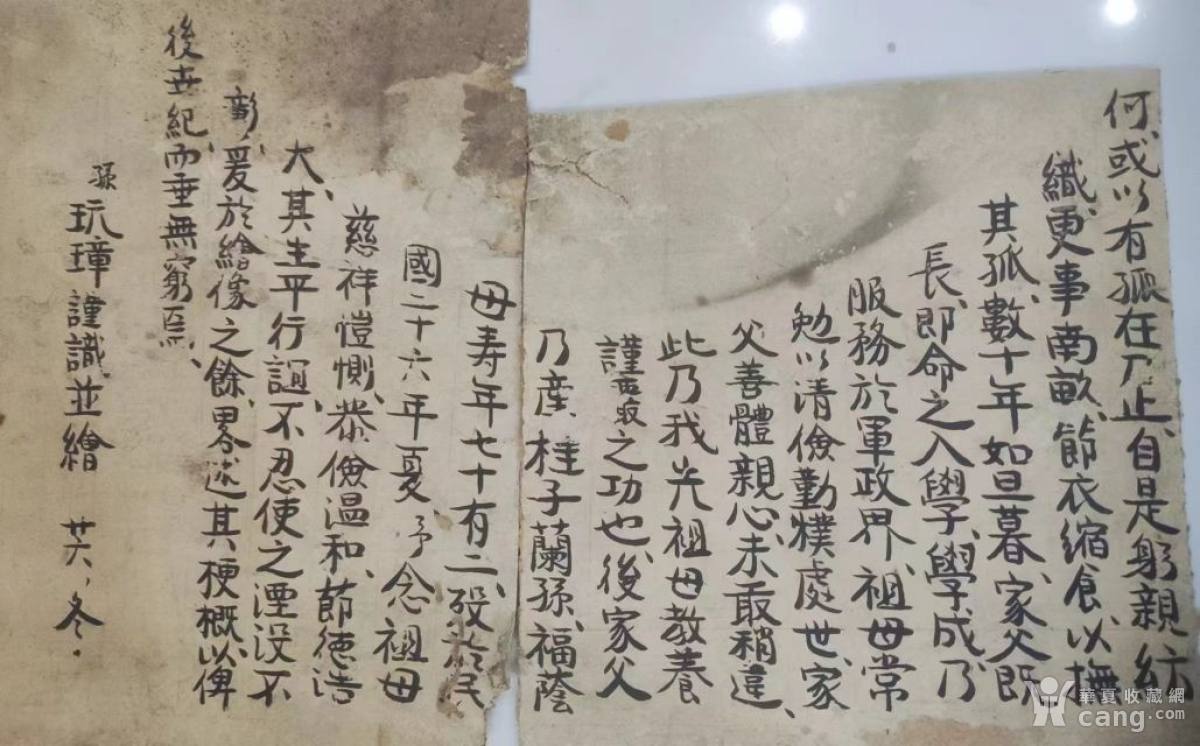 何、或以有孤在乃止、自是躬親紡
織、更事南畝、節衣縮食、以撫
其孤、數十年如旦暮、家父既
長、即命之入學、學成、乃
服務於軍政界、祖母常
勉以清儉勤樸處世、家
父善體親心、未敢稍違、
此乃我先祖母教養
謹嚴之功也、後家父
乃產桂子蘭孫、福蔭
母寿年七十有二、殁於民
國二十六年夏、予念祖母
慈祥愷惻、恭儉溫和、節德浩
大、其生平行誼、不忍使之湮没不
彰、爰於繪像之餘、畧述其梗概、以俾
後世紀而垂無窮焉、
孫 玩璋謹識並繪 廿六、冬.
華夏收藏網
cang.com